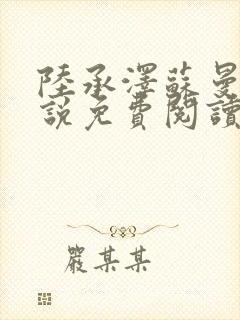 陸承澤蘇曼
說免費閱讀
嚴某某